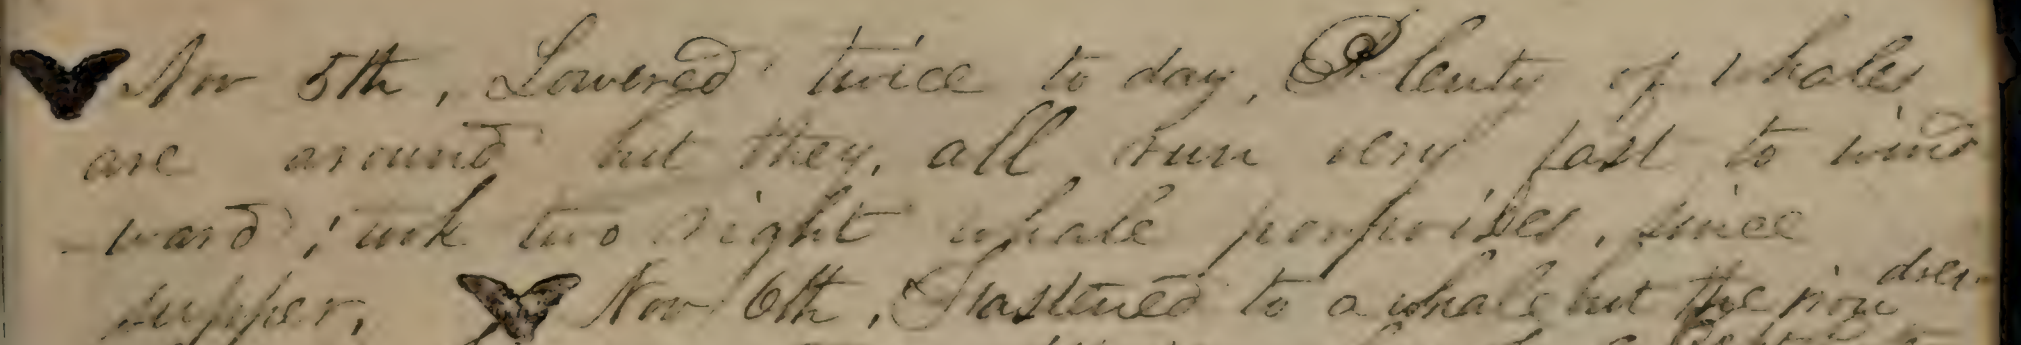 Nov 5th, Lowered twice to day, Plenty of whales
are around but they, all run very fast to wind
-ward; took two right whale porpoises, since
supper, Nov 6th, Fastened to a whale but the iron drew